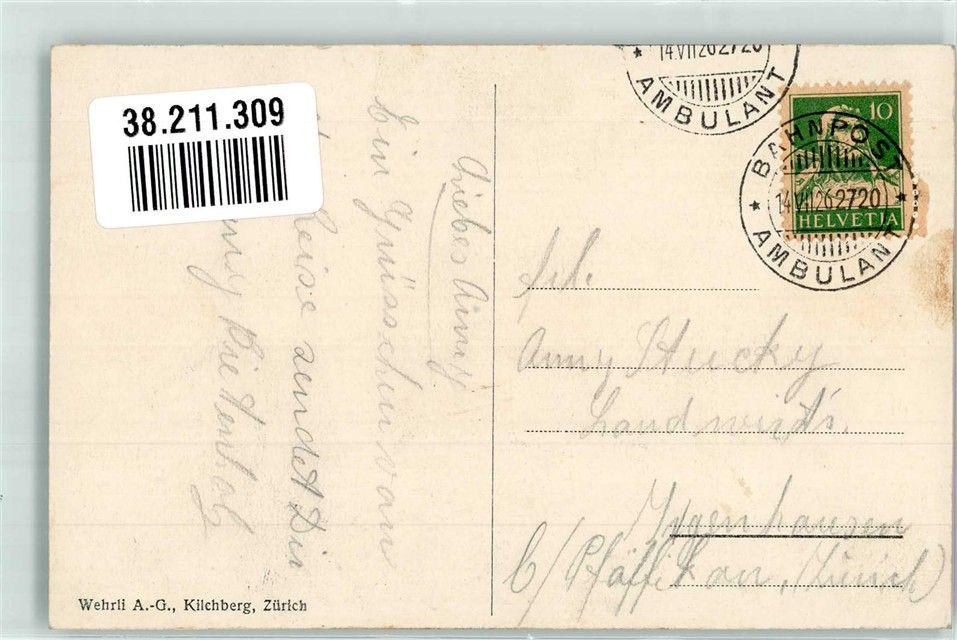 38.211.309
14.VII.26 2720
AMBULANT
10
BAHNPOST
14.VII.26 2720
HELVETIA
AMBULANT
Liebes Anny
Ein Grüsschen von
Reise sendet Dir
Frl.
Anny Stucky
Landwirts.
Iggenhausen
b/Pfäffikon, Zürich)
Wehrli A.-G., Kilchberg, Zürich